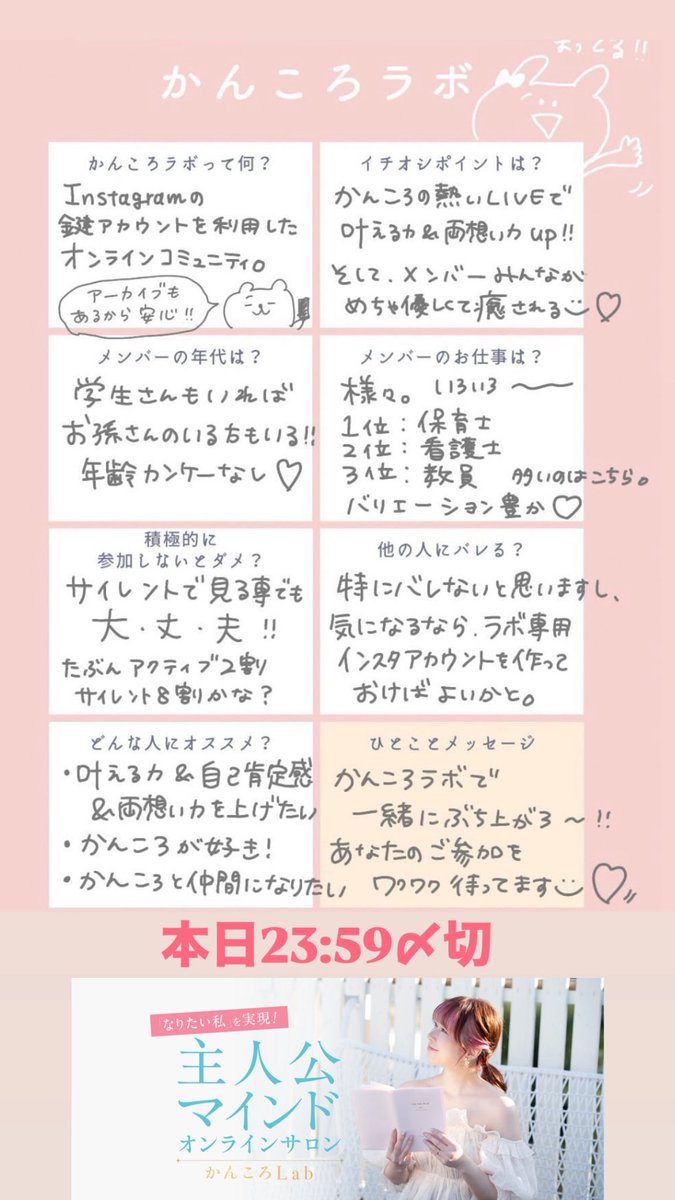 かんころラボ
おっくる!!
かんころラボって何？
Instagramの
鍵アカウントを利用した
オンラインコミュニティ。
アーカイブも
あるから安心!!
イチオシポイントは？
かんころの熱いLIVEで
叶える力&両想い力up!!
そして、メンバーみんなが
めちゃ優しくて癒される
メンバーの年代は？
学生さんもいれば
お孫さんのいる方もいる!!
年齢カンケーなし♡
メンバーのお仕事は？
様々。いろいろ〜
1位：保育士
2位：看護士
3位：教員 多いのはこちら。
バリエーション豊か♡
積極的に
参加しないとダメ？
サイレントで見る専でも
大・丈・夫!!
たぶんアクティブ2割
サイレント8割かな？
他の人にバレる？
特にバレないと思いますし、
気になるなら、ラボ専用
インスタアカウントを作って
おけばよいかと。
どんな人にオススメ？
・叶える力&自己肯定感
&両想い力を上げたい
・かんころが好き!
・かんころと仲間になりたい
ひとことメッセージ
かんころラボで
一緒にぶち上がろ〜!!
あなたのご参加を
ワクワク待ってます
本日23:59〆切
「なりたい私」を実現！
主人公
マインド
オンラインサロン
かんころLab